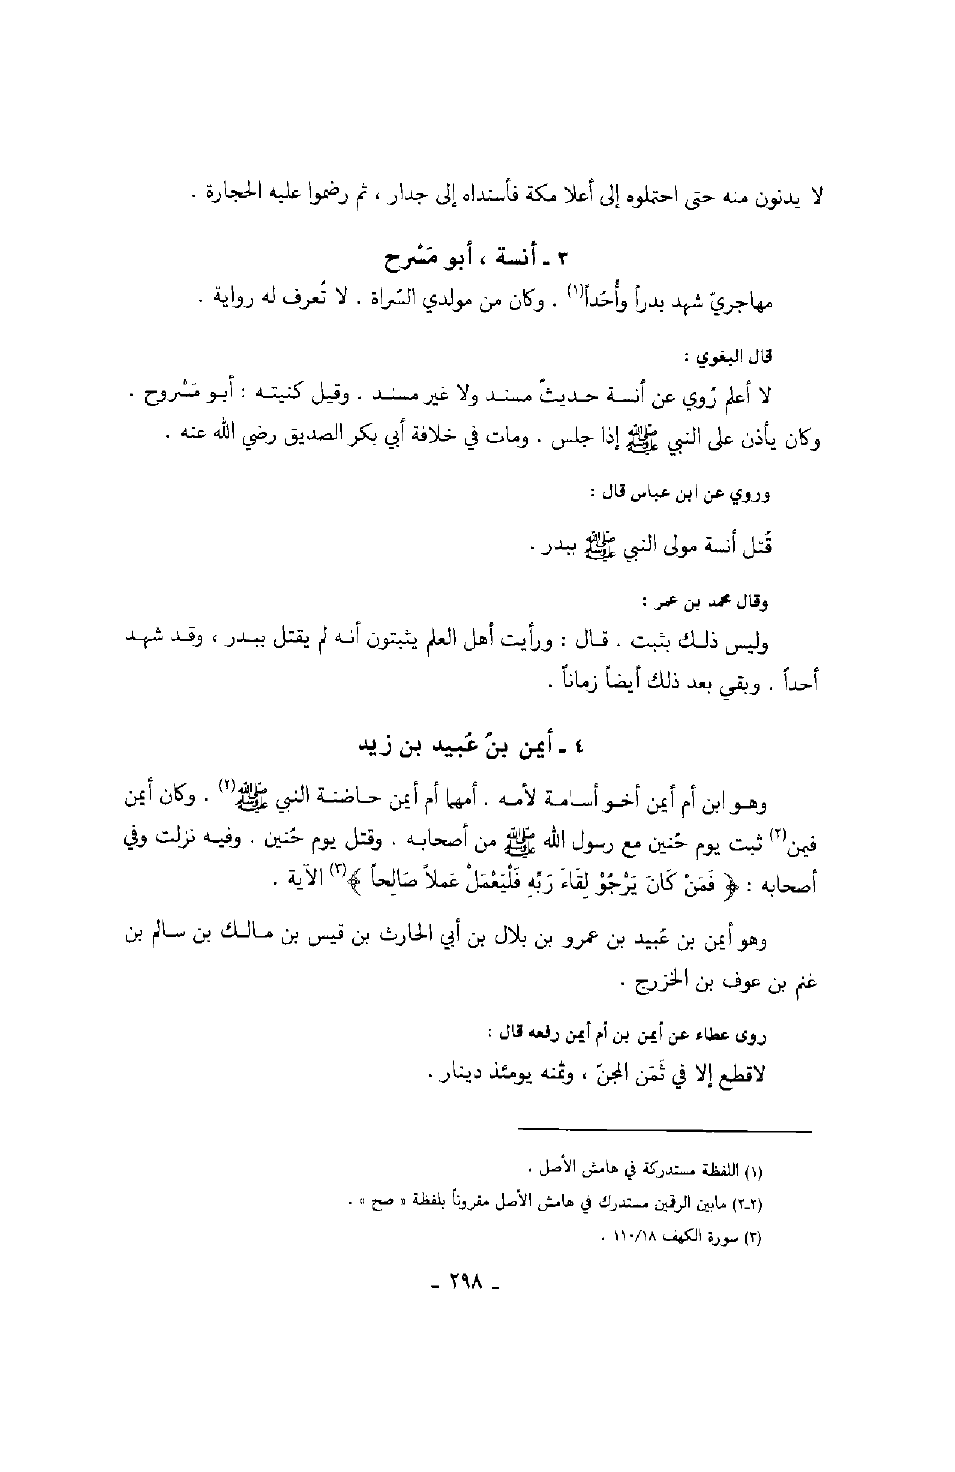 لا يدنون منه حتى احتملوه إلى أعلا مكة فأسنداه إلى جدار ، ثم رضموا عليه الحجارة .
٣ ـ أنسة ، أبو مَسْرح
مهاجريّ شهد بدراً وأُحُداً(١) . وكان من مولدي السَّراة . لا تُعرف له رواية .
قال البغوي :
لا أعلم رُوي عن أنسة حديثٌ مسند ولا غير مسند . وقيل كنيته : أبو مَسْروح .
وكان يأذن على النبي ﷺ إذا جلس . ومات في خلافة أبي بكر الصديق رضي الله عنه .
وروي عن ابن عباس قال :
قُتل أنسة مولى النبي ﷺ ببدر .
وقال محمد بن عمر :
وليس ذلك بثبت . قال : ورأيت أهل العلم يثبتون أنه لم يقتل ببدر ، وقد شهد
أحداً . وبقي بعد ذلك أيضاً زماناً .
٤ ـ أيمن بنُ عُبيد بن زيد
وهو ابن أم أيمن أخو أسامة لأمه . أمهما أم أيمن حاضنة النبي ﷺ(٢) . وكان أيمن
فيمن(٢) ثبت يوم حُنين مع رسول الله ﷺ من أصحابه . وقتل يوم حُنين . وفيه نزلت وفي
أصحابه : ﴿ فَمَنْ كَانَ يَرْجُوْ لِقَاءَ رَبِّهِ فَلْيَعْمَلْ عَملاً صَالِحاً ﴾(٣) الآية .
وهو أيمن بن عُبيد بن عمرو بن بلال بن أبي الحارث بن قيس بن مالك بن سالم بن
غنم بن عوف بن الخزرج .
روى عطاء عن أيمن بن أم أيمن رفعه قال :
لاقطع إلا في ثَمَن المجنّ ، وثمنه يومئذ دينار .
(١) اللفظة مستدركة في هامش الأصل .
(٢-٢) مابين الرقمين مستدرك في هامش الأصل مقروناً بلفظة « صح » .
(٣) سورة الكهف ١١٠/١٨ .
ـ ٢٩٨ ـ